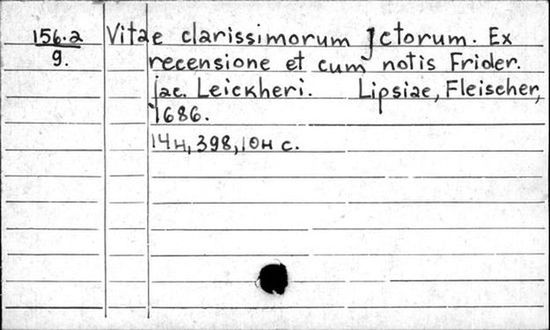 156.2 Vitae clarissimorum Jctorum. Ex
9. recensione et cum notis Frider.
Jac. Leickheri. Lipsiae, Fleischer,
1686.
14н, 398, 10н с.